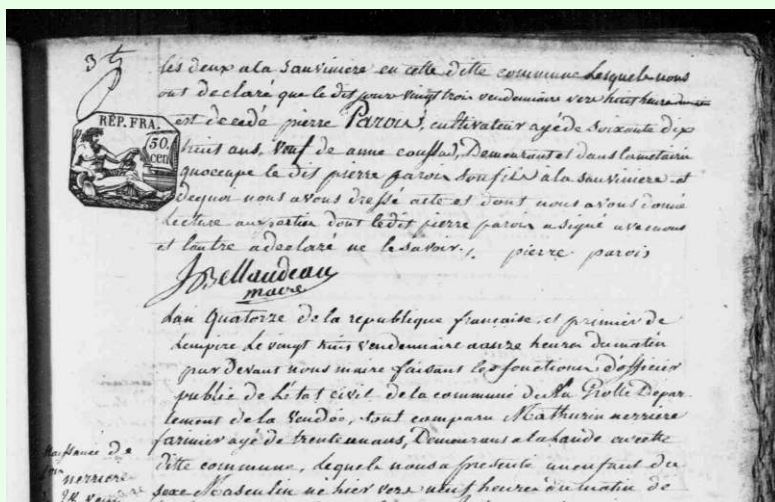 3
les deux a la Sauviniere en cette ditte commune lesquels nous
ont declaré que le dis jour vingt trois vendemiaire vers huit heure
RÉP. FRA.
est decedé pierre Parois, cultivateur agé de soixante dix
50.
cen
huit ans, veuf de anne coussad, Demourant et dans la metairie
quoccupe le dis pierre parois son fils a la sauviniere et
dequoi nous avons dressé acte et dont nous avons donné
lecture aux partien dont le dit pierre parois a signé avec nous
et l'autre a declaré ne le savoir. pierre parois
maire
Lan Quatorze de la republique française, et premier de
lempire le vingt huis Vendemiaire a onze heures du matin
par devant nous maire faisant les fonctions d'officier
public de letat civil de la commune de La Grolle Depar
tement de la Vendée, sont comparu Mathurin nerrière
farinier agé de trente un ans, Demourans a la Lande en cette
Naissance de
ditte commune, lequel nous a presenté un enfant du
nerriere
sexe Masculin né hier vers neuf heures du matin de